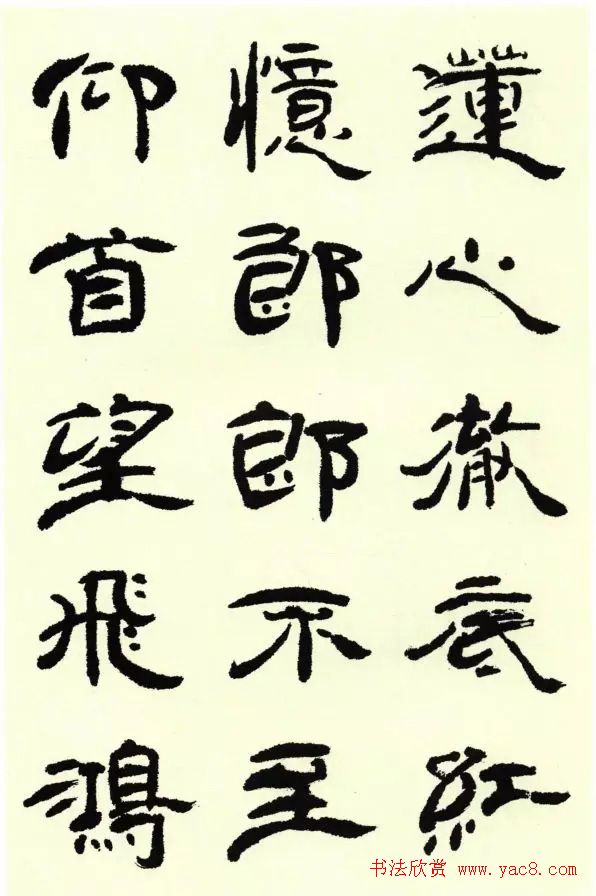 蓮心徹底紅
憶郎郎不至
仰首望飛鴻
书法欣赏 www.yac8.com